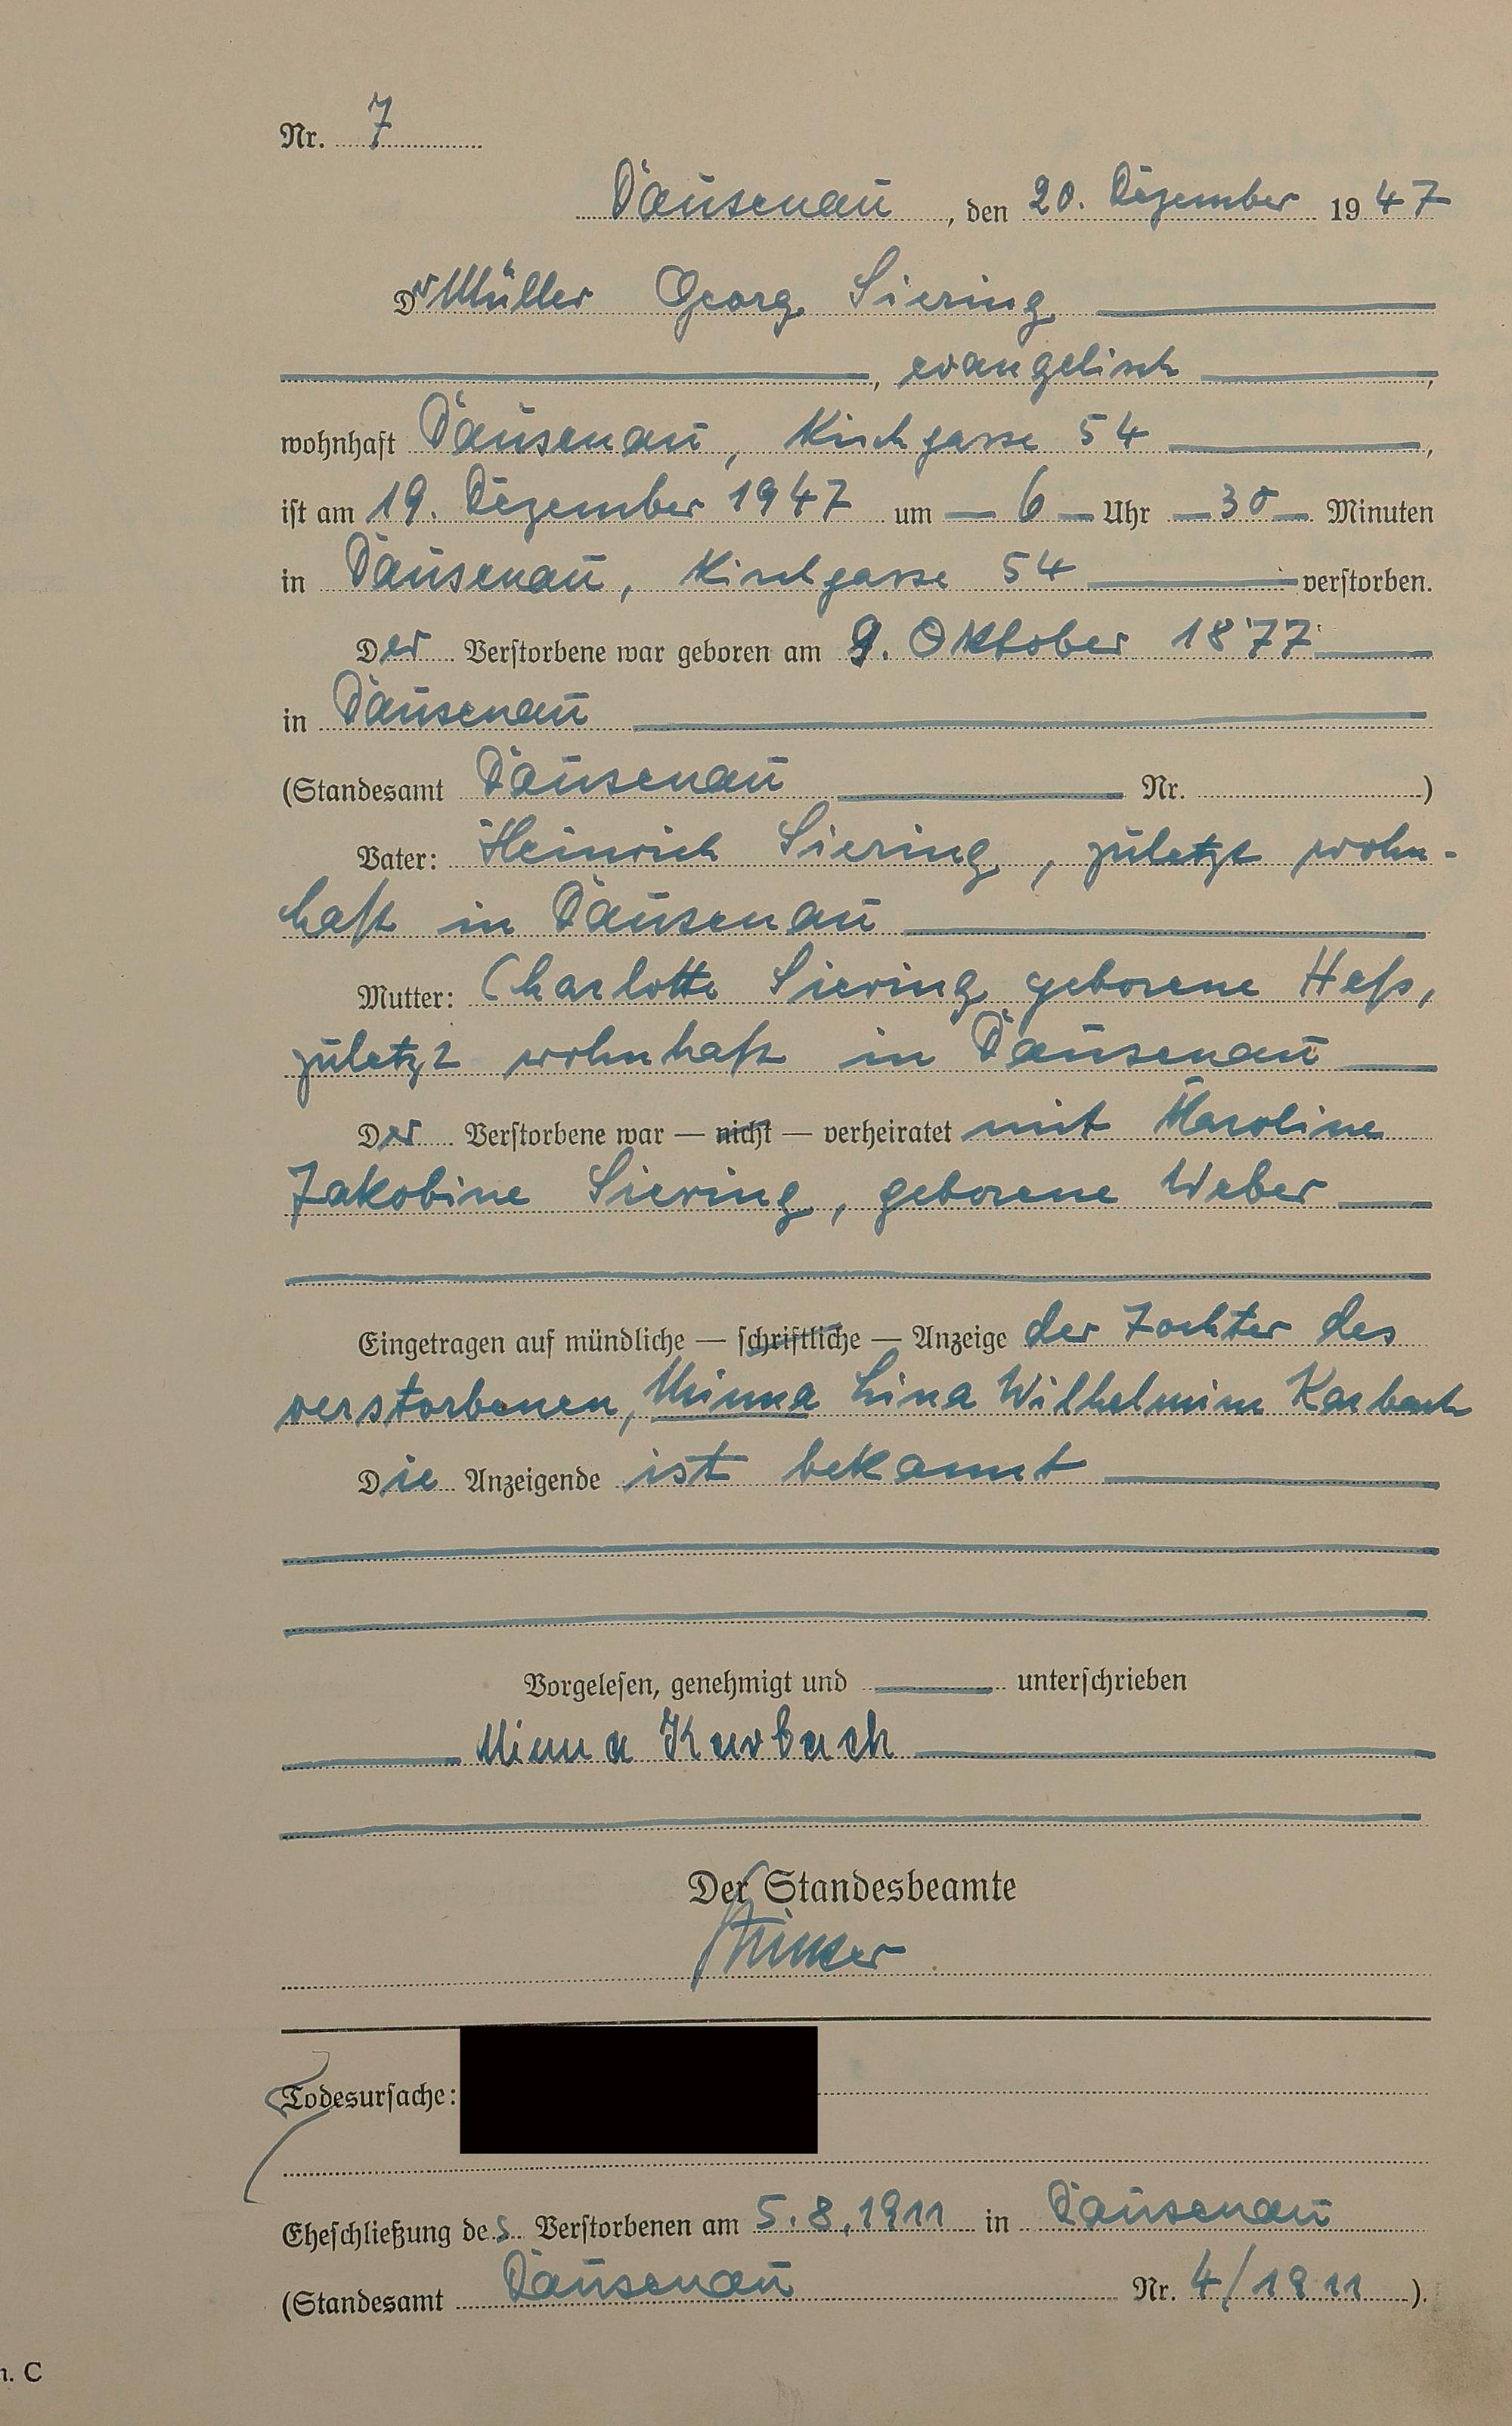 Nr. 7
Dausenau, den 20. Dezember 1947
Dr Müller Georg Siering
, evangelisch,
wohnhaft Dausenau, Kirchgasse 54,
ist am 19. Dezember 1947 um 6 Uhr 30 Minuten
in Dausenau, Kirchgasse 54 verstorben.
Der Verstorbene war geboren am 9. Oktober 1877
in Dausenau
(Standesamt Dausenau Nr. )
Vater: Heinrich Siering, zuletzt wohn-
haft in Dausenau
Mutter: Charlotte Siering geborene Heß,
zuletzt wohnhaft in Dausenau
Der Verstorbene war — nicht — verheiratet mit Karoline
Jakobine Siering, geborene Weber
Eingetragen auf mündliche — schriftliche — Anzeige der Tochter des
verstorbenen, Minna Lina Wilhelmine Karbach
Die Anzeigende ist bekannt
Vorgelesen, genehmigt und unterschrieben
Minna Karbach
Der Standesbeamte
Todesursache:
Eheschließung des Verstorbenen am 5.8.1911 in Dausenau
(Standesamt Dausenau Nr. 4/1911).
C